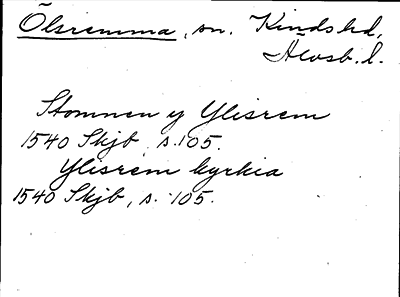 Ölsremma, sn. Kinds hd,
Älvsb. l.
Stommen y Ylisrem
1540 Skjb, s. 105.
Ylisrem kyrkia
1540 Skjb, s. 105.